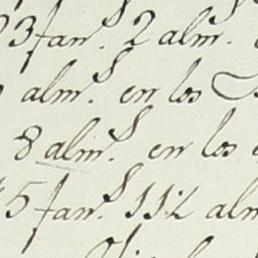 3 fan.s 2 alm.s
alm.s en los
8 alm.s en los
5 fan.s 11½ alm